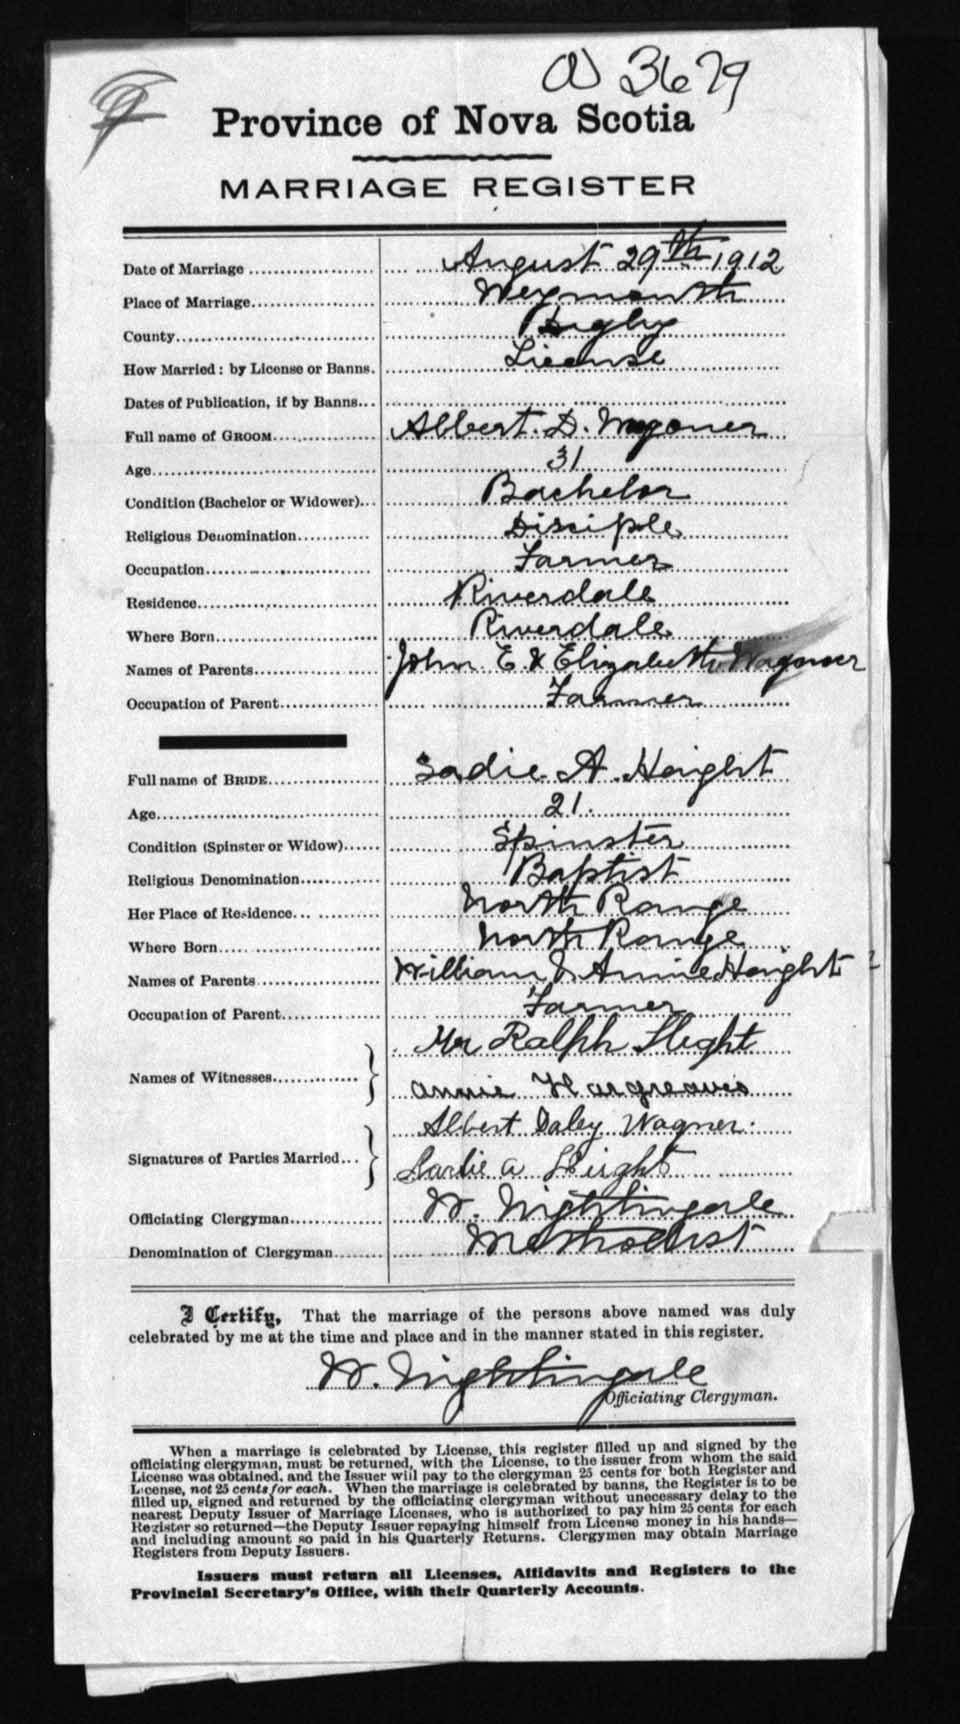 (A) 3679
Province of Nova Scotia
MARRIAGE REGISTER
Date of Marriage August 29th 1912
Place of Marriage Weymouth
County Digby
How Married: by License or Banns. License
Dates of Publication, if by Banns
Full name of GROOM Albert. D. Wagoner
Age 31
Condition (Bachelor or Widower) Bachelor
Religious Denomination Disciple
Occupation Farmer
Residence Riverdale
Where Born Riverdale
Names of Parents John E & Elizabeth Wagoner
Occupation of Parent Farmer
Full name of BRIDE Sadie A. Haight
Age 21.
Condition (Spinster or Widow) Spinster
Religious Denomination Baptist
Her Place of Residence North Range
Where Born North Range
Names of Parents William & Annie Haight
Occupation of Parent Farmer
Mr Ralph Hight
Names of Witnesses
Annie Hargreaves
Albert Daley Wagner.
Signatures of Parties Married
Sadie A Haight
Officiating Clergyman W. Nightingale
Denomination of Clergyman Methodist
I Certify, That the marriage of the persons above named was duly
celebrated by me at the time and place and in the manner stated in this register.
W. Nightingale
Officiating Clergyman.
When a marriage is celebrated by License, this register filled up and signed by the
officiating clergyman, must be returned, with the License, to the issuer from whom the said
License was obtained, and the Issuer will pay to the clergyman 25 cents for both Register and
License, not 25 cents for each. When the marriage is celebrated by banns, the Register is to be
filled up, signed and returned by the officiating clergyman without unnecessary delay to the
nearest Deputy Issuer of Marriage Licenses, who is authorized to pay him 25 cents for each
Register so returned—the Deputy Issuer repaying himself from License money in his hands—
and including amount so paid in his Quarterly Returns. Clergymen may obtain Marriage
Registers from Deputy Issuers.
Issuers must return all Licenses, Affidavits and Registers to the
Provincial Secretary's Office, with their Quarterly Accounts.